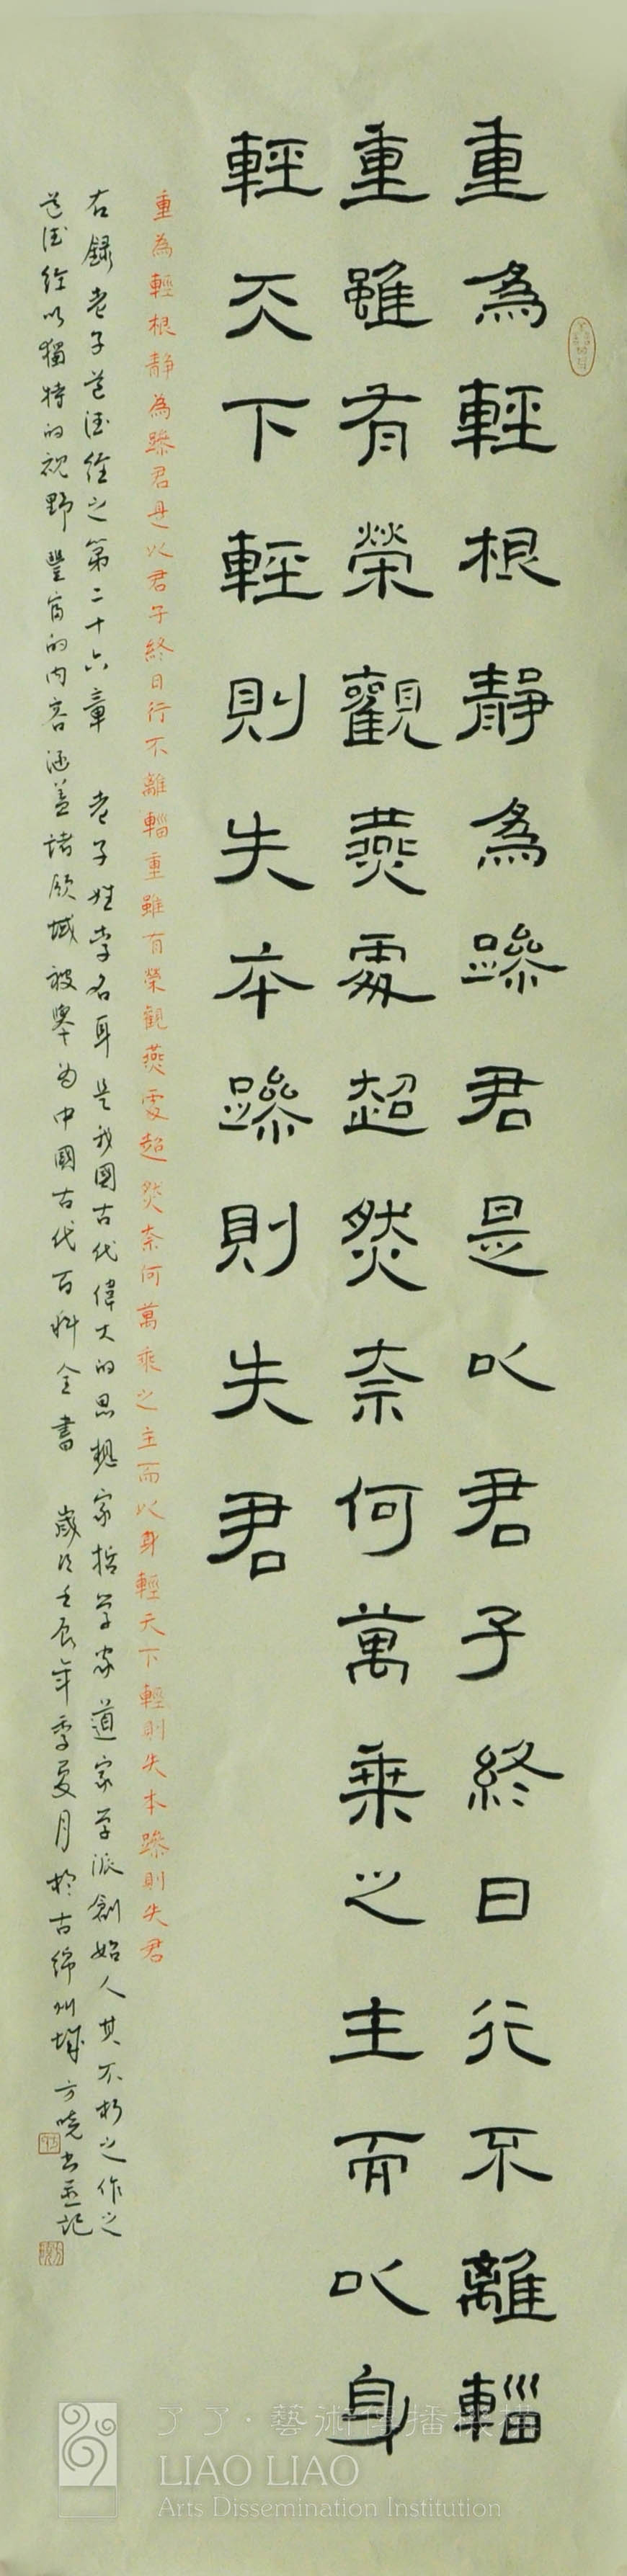 重為輕根靜為躁君是以君子終日行不離輜
重雖有榮觀燕處超然奈何萬乘之主而以身
輕天下輕則失本躁則失君
重為輕根靜為躁君是以君子終日行不離輜重雖有榮觀燕處超然奈何萬乘之主而以身輕天下輕則失本躁則失君
右錄老子道德經之第二十六章 老子姓李名耳是我國古代偉大的思想家哲学家道家学派創始人其不朽之作之
道德經以獨特的視野豐富的內容涵蓋諸領域被舉為中國古代百科全書 歲次壬辰年季夏月於古綿州城方曉書並記
了了·藝術傳播機構
LIAO LIAO
Arts Dissemination Institution